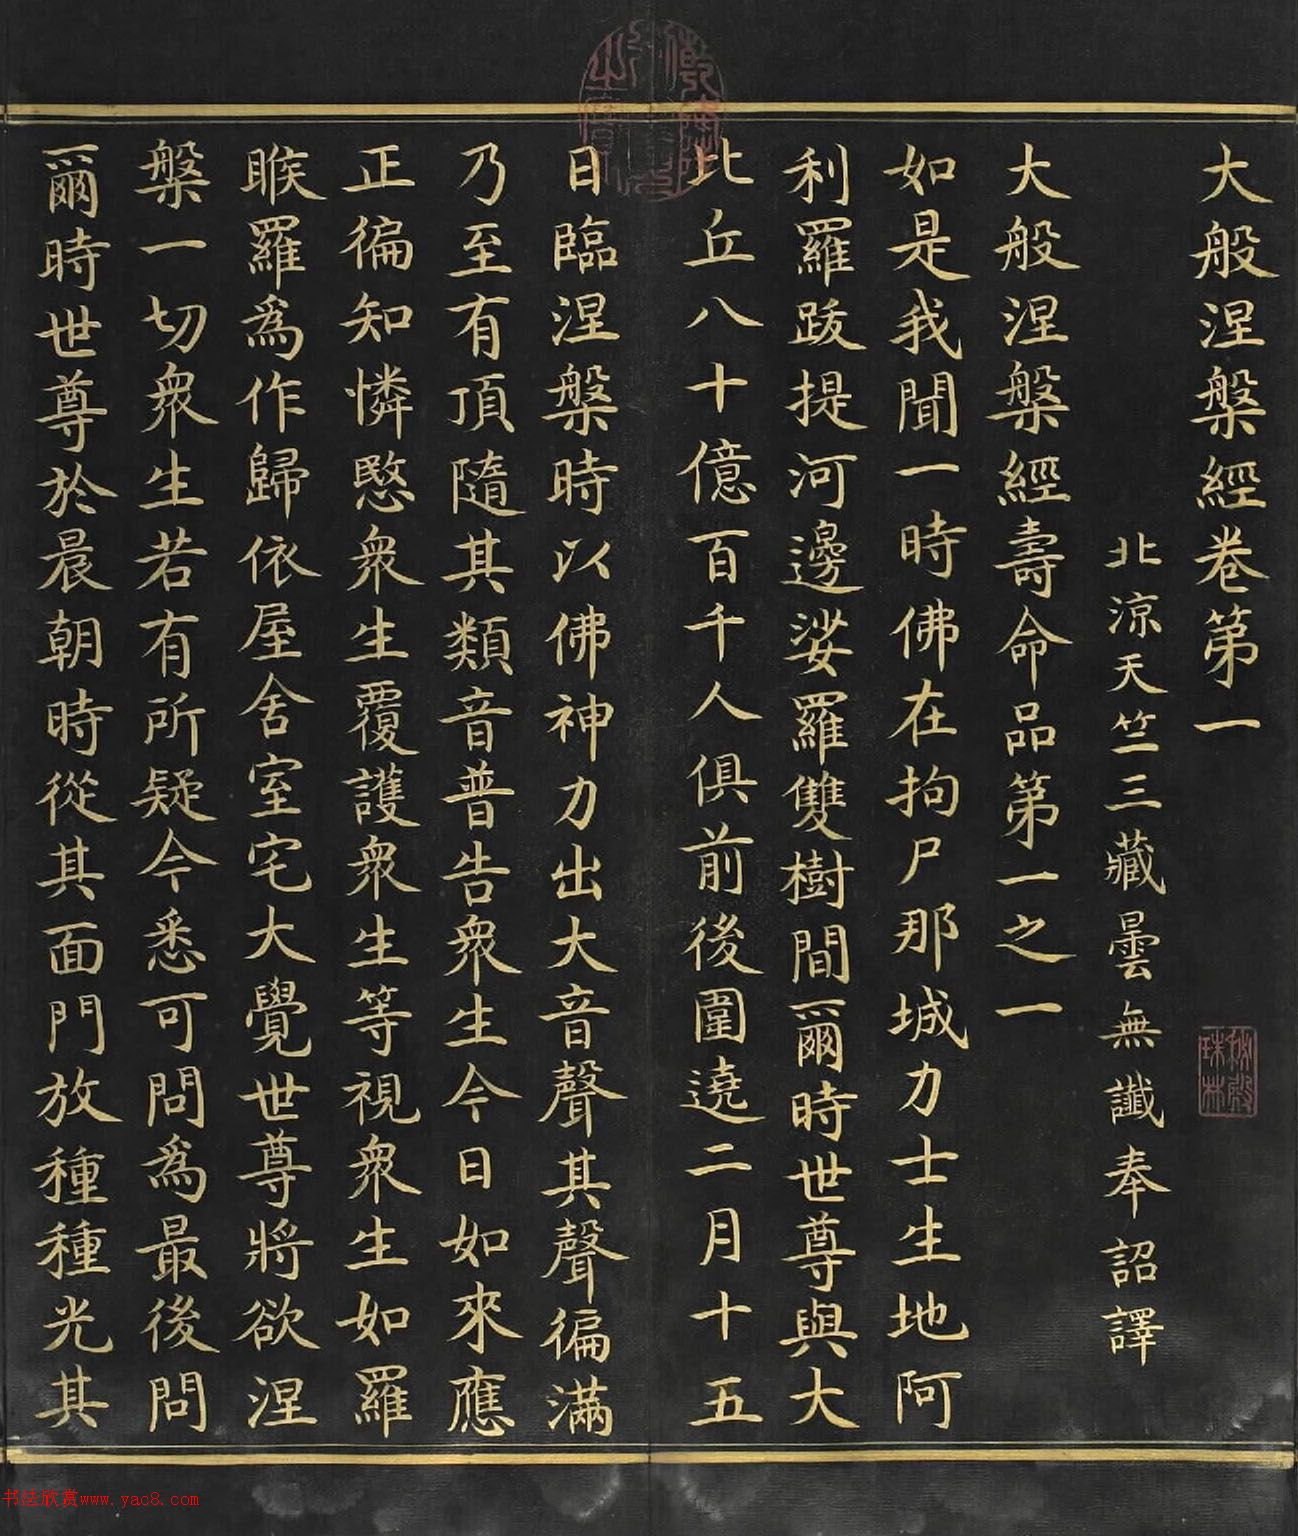 大般涅槃經卷第一
北涼天竺三藏曇無讖奉詔譯
大般涅槃經壽命品第一之一
如是我聞一時佛在拘尸那城力士生地阿
利羅跋提河邊娑羅雙樹間爾時世尊與大
比丘八十億百千人俱前後圍遶二月十五
日臨涅槃時以佛神力出大音聲其聲徧滿
乃至有頂隨其類音普告衆生今日如來應
正徧知憐愍衆生覆護衆生等視衆生如羅
睺羅爲作歸依屋舍室宅大覺世尊將欲涅
槃一切衆生若有所疑今悉可問爲最後問
爾時世尊於晨朝時從其面門放種種光其
秘殿珠林
书法欣赏www.yac8.com